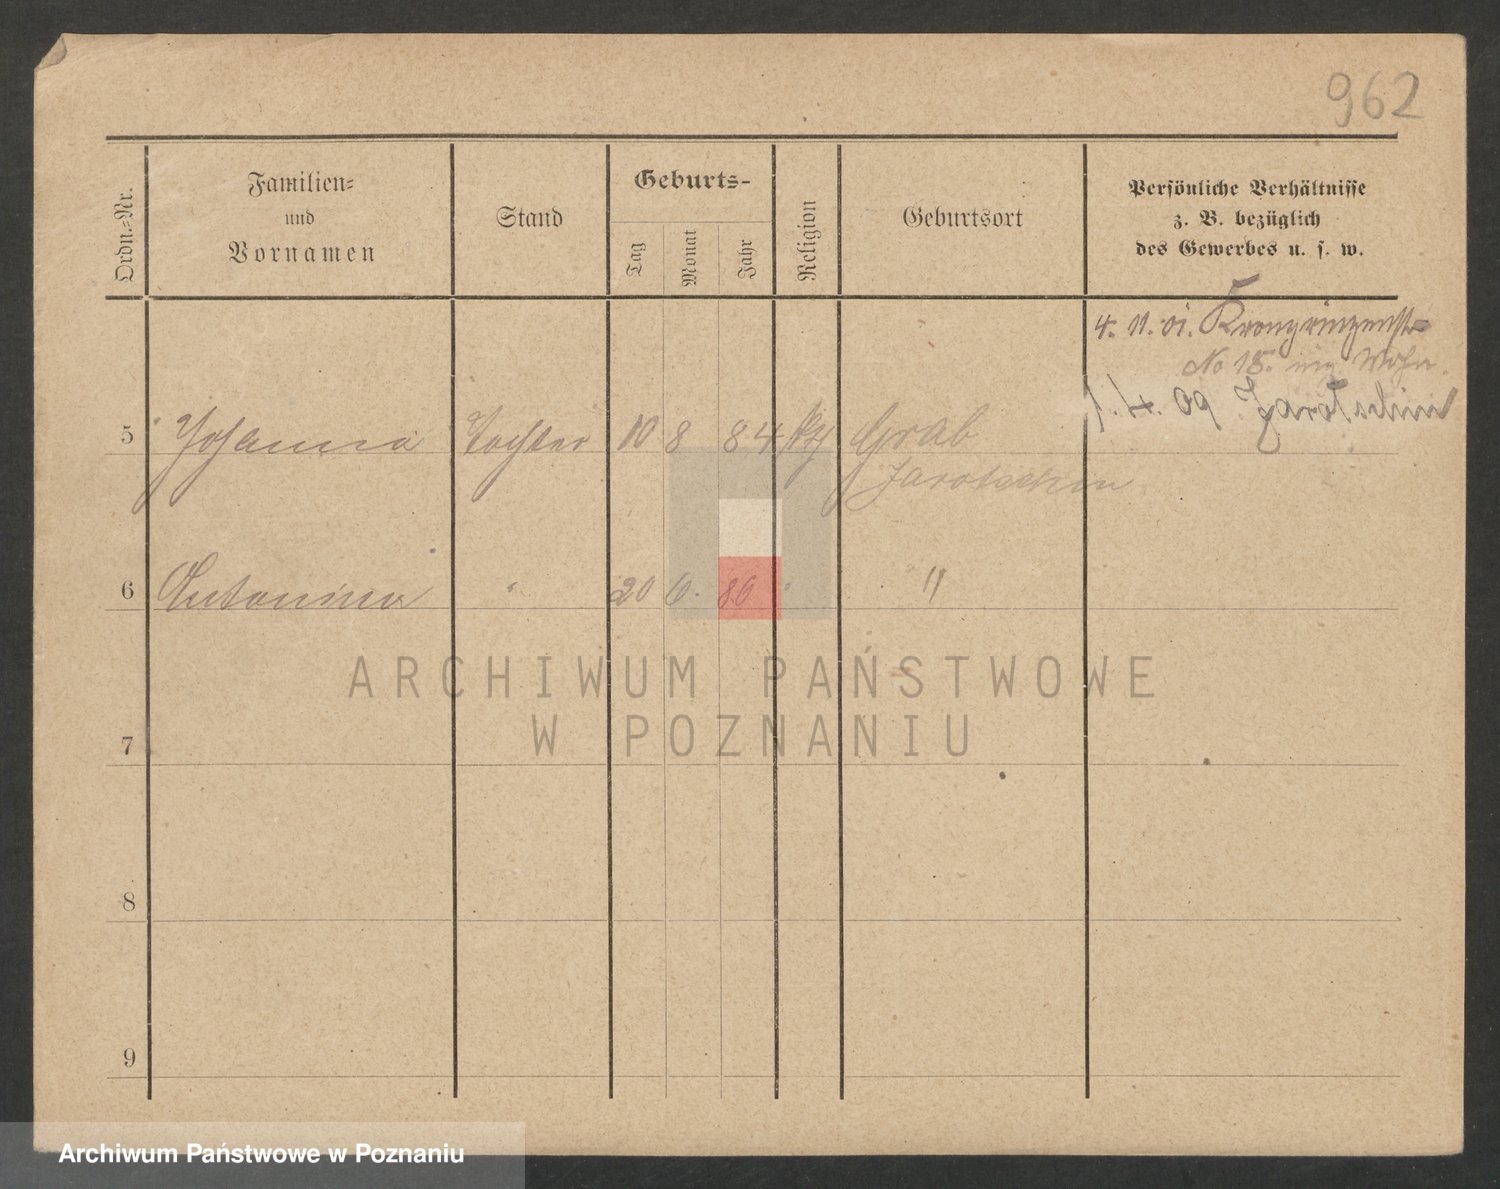 962
Ordn.-Nr.
Familien-
und
Vornamen
Stand
Geburts-
Tag
Monat
Jahr
Religion
Geburtsort
Persönliche Verhältnisse
z. B. bezüglich
des Gewerbes u. s. w.
4. 11. 01. Kronprinzenstr
No 18. Wohn.
1. 4. 09 Jarotschin
5 Johanna Tochter 10 8 84 Grab
Jarotschin
6 Antonina " 20 6. 86 " "
7
8
9
ARCHIWUM PAŃSTWOWE
W POZNANIU
Archiwum Państwowe w Poznaniu